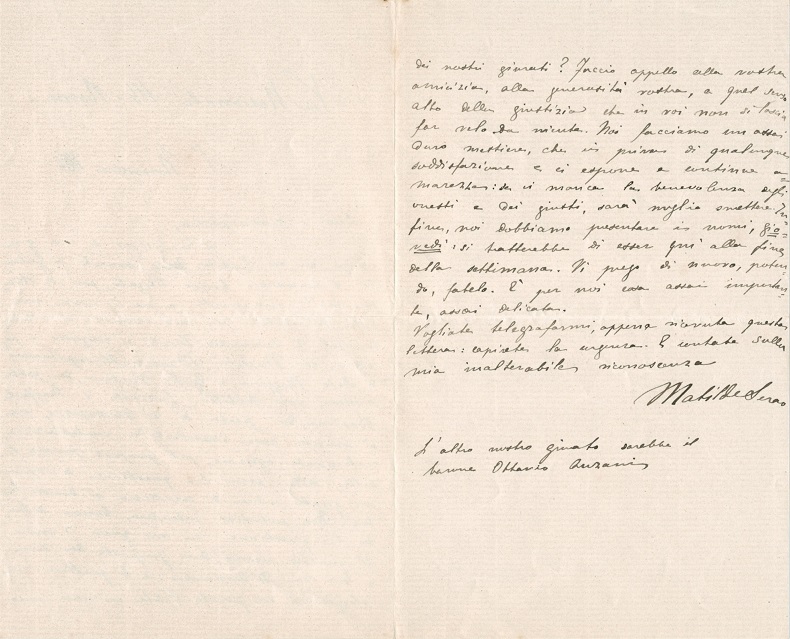 dei nostri giurati? Faccio appello alla vostra
amicizia, alla generosità vostra, a quel senso
alto della giustizia che in voi non si lascia
far velo da niente. Noi facciamo un assai
duro mestiere, che ci priva di qualunque
soddisfazione e ci espone a continue a=
marezze: se ci manca la benevolenza degli
onesti e dei giusti, sarà meglio smettere. In=
fine, noi dobbiamo presentare i nomi, gio=
vedì: si tratterebbe di esser qui alla fine
della settimana. Vi prego di nuovo, poten=
do, fatelo. È per noi cosa assai importan=
te, assai delicata.
Vogliate telegrafarmi, appena ricevuta questa
lettera: capirete la urgenza. E contate sulla
mia inalterabile riconoscenza
Matilde Serao
L'altro nostro giurato sarebbe il
barone Ottavio Anzani